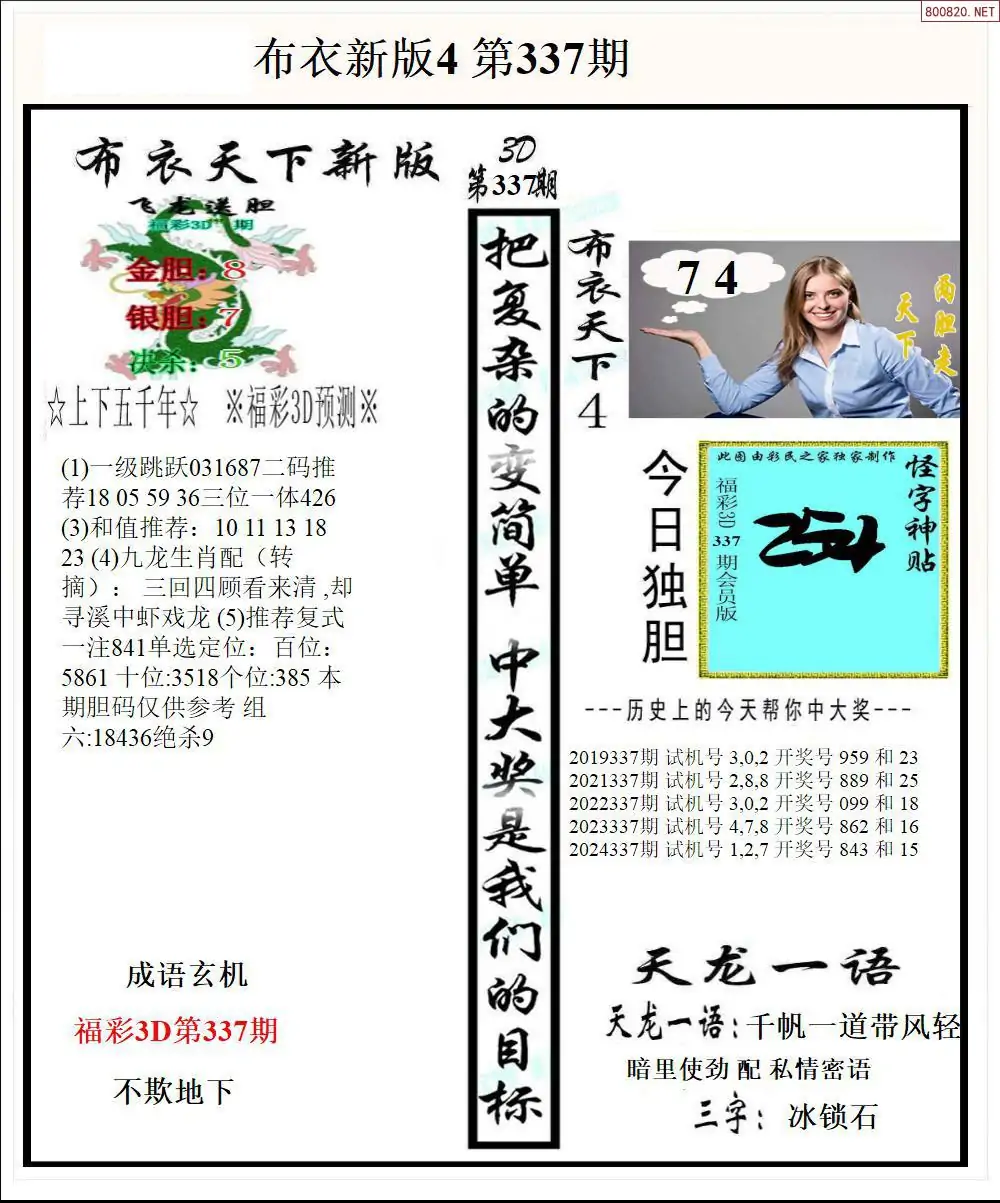 800820.NET
布衣新版4 第337期
布衣天下新版
飞龙送胆
福彩3D 期
金胆：8
银胆：7
决杀：5
☆上下五千年☆ ※福彩3D预测※
(1)一级跳跃031687二码推
荐18 05 59 36三位一体426
(3)和值推荐：10 11 13 18
23 (4)九龙生肖配（转
摘）： 三回四顾看来清 ,却
寻溪中虾戏龙 (5)推荐复式
一注841单选定位：百位：
5861 十位:3518个位:385 本
期胆码仅供参考 组
六:18436绝杀9
成语玄机
福彩3D第337期
不欺地下
3D
第337期
把复杂的变简单 中大奖是我们的目标
布衣天下4
7 4
两胆走
天下
今日独胆
此图由彩民之家独家制作
怪字神贴
福彩3D 337 期会员版
---历史上的今天帮你中大奖---
2019337期 试机号 3,0,2 开奖号 959 和 23
2021337期 试机号 2,8,8 开奖号 889 和 25
2022337期 试机号 3,0,2 开奖号 099 和 18
2023337期 试机号 4,7,8 开奖号 862 和 16
2024337期 试机号 1,2,7 开奖号 843 和 15
天龙一语
天龙一语：千帆一道带风轻
暗里使劲 配 私情密语
三字： 冰锁石